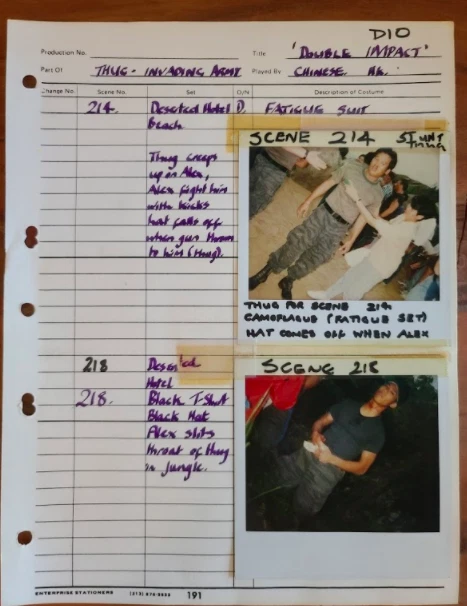 D10
Production No. Title 'DOUBLE IMPACT'
Part Of THUG - INVADING ARMY Played By CHINESE. HK.
Change No. Scene No. Set D/N Description of Costume
214. Deserted Hotel D. FATIGUE SUIT
Beach.
SCENE 214 STUNT
THUG
Thug creeps
up on Alex,
Alex fight him
with kicks
hat falls off
when gun thrown
to him (thug).
THUG FOR SCENE 214
CAMOFLAGUE (FATIGUE SET)
HAT COMES OFF WHEN ALEX
218 Deserted
Hotel
SCENE 218
218. Black T-Shirt
Black Hat
Alex slits
throat of thug
in jungle.
ENTERPRISE STATIONERS 191